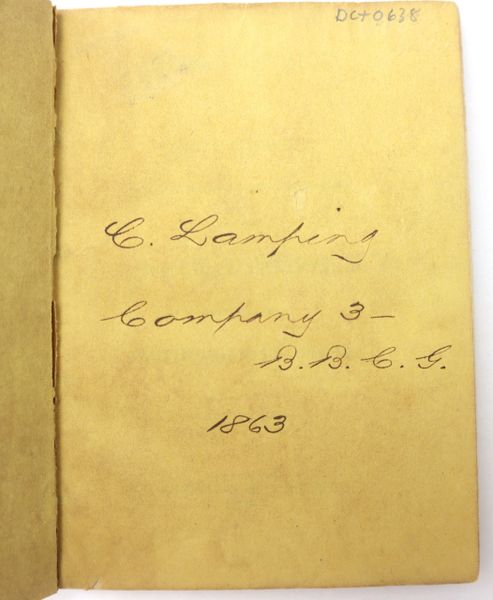 DC+0638
C. Lamping
Company 3—
B. B. C. G.
1863